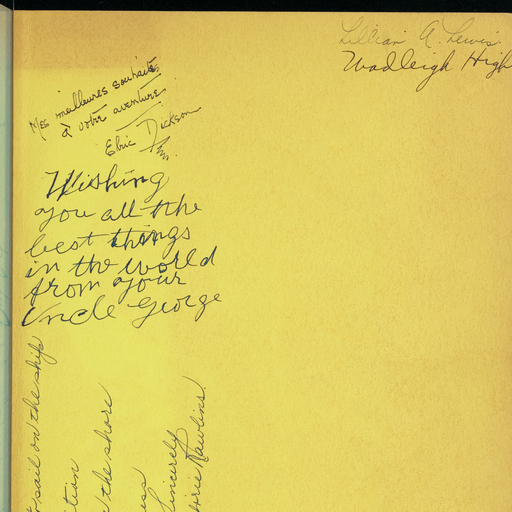 Lillian A. Lewis
Wadleigh High
Mes meilleures souhaits
à votre aventure
Elric Dickson
Wishing
you all the
best things
in the world
from your
Uncle George
sail on the ship
the shore
Sincerely
Rawlins